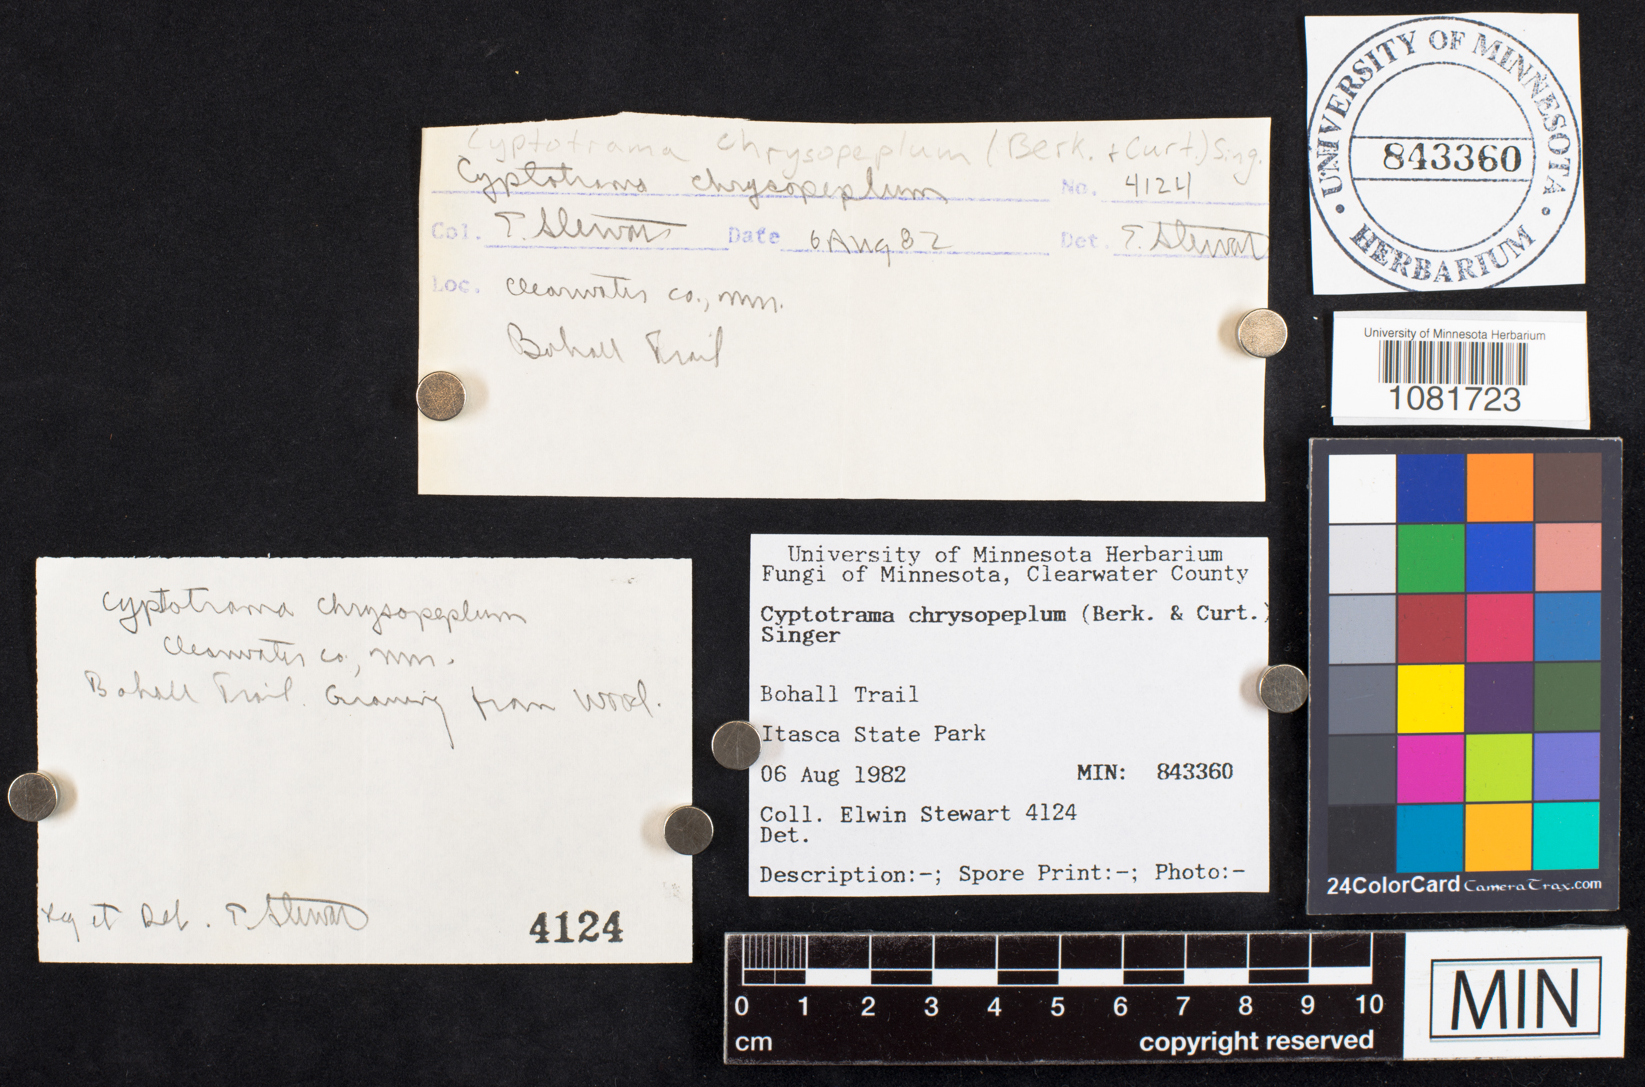 Cyptotrama chrysopeplum (Berk. + Curt.) Sing.
Cyptotrama chrysopeplum No. 4124
Col. E. Stewart Date 6 Aug 82 Det. E. Stewart
Loc. Clearwater co., mn.
Bohall Trail
UNIVERSITY OF MINNESOTA
843360
HERBARIUM
University of Minnesota Herbarium
1081723
Cyptotrama chrysopeplum
Clearwater co., mn.
Bohall Trail. Growing from wood.
Leg et Det. E. Stewart
4124
University of Minnesota Herbarium
Fungi of Minnesota, Clearwater County
Cyptotrama chrysopeplum (Berk. & Curt.)
Singer
Bohall Trail
Itasca State Park
06 Aug 1982 MIN: 843360
Coll. Elwin Stewart 4124
Det.
Description:-; Spore Print:-; Photo:-
24ColorCard CameraTrax.com
0 1 2 3 4 5 6 7 8 9 10
cm copyright reserved
MIN